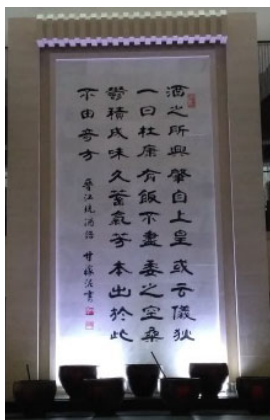 酒之所興肇自上皇或云儀狄
一曰杜康有飯不盡委之空桑
鬱積成味久蓄氣芳本出於此
不由奇方 晉江統酒誥 書